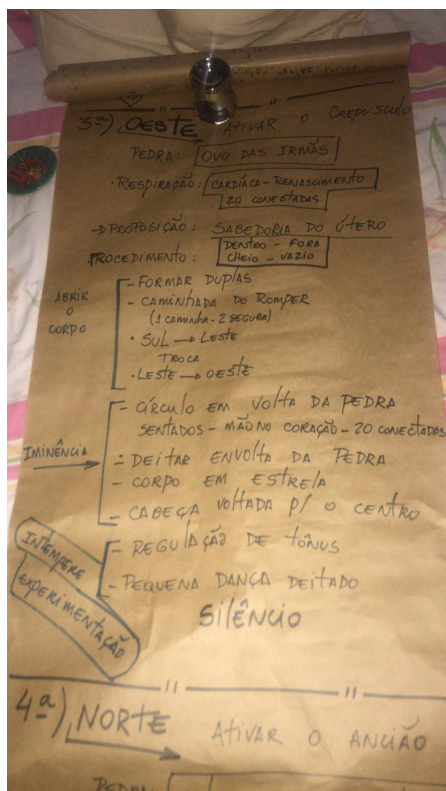 3ª) OESTE ATIVAR O CREPUSCULO
PEDRA: OVO DAS IRMÃS
• RESPIRAÇÃO: CARDÍACA - RENASCIMENTO
20 CONECTADAS
→ PROPOSIÇÃO: SABEDORIA DO ÚTERO
PROCEDIMENTO: DENTRO - FORA
CHEIO - VAZIO
ABRIR
O
CORPO
- FORMAR DUPLAS
- CAMINHADA DO ROMPER
(1 CAMINHA - 2 SEGURA)
• SUL → LESTE
TROCA
• LESTE → OESTE
IMINÊNCIA
- CÍRCULO EM VOLTA DA PEDRA
SENTADOS - MÃO NO CORAÇÃO - 20 CONECTADAS
- DEITAR ENVOLTA DA PEDRA
- CORPO EM ESTRELA
- CABEÇA VOLTADA P/ O CENTRO
INTEMPERE
EXPERIMENTAÇÃO
- REGULAÇÃO DE TÔNUS
- PEQUENA DANÇA DEITADO
SILÊNCIO
4ª) NORTE ATIVAR O ANCIÃO